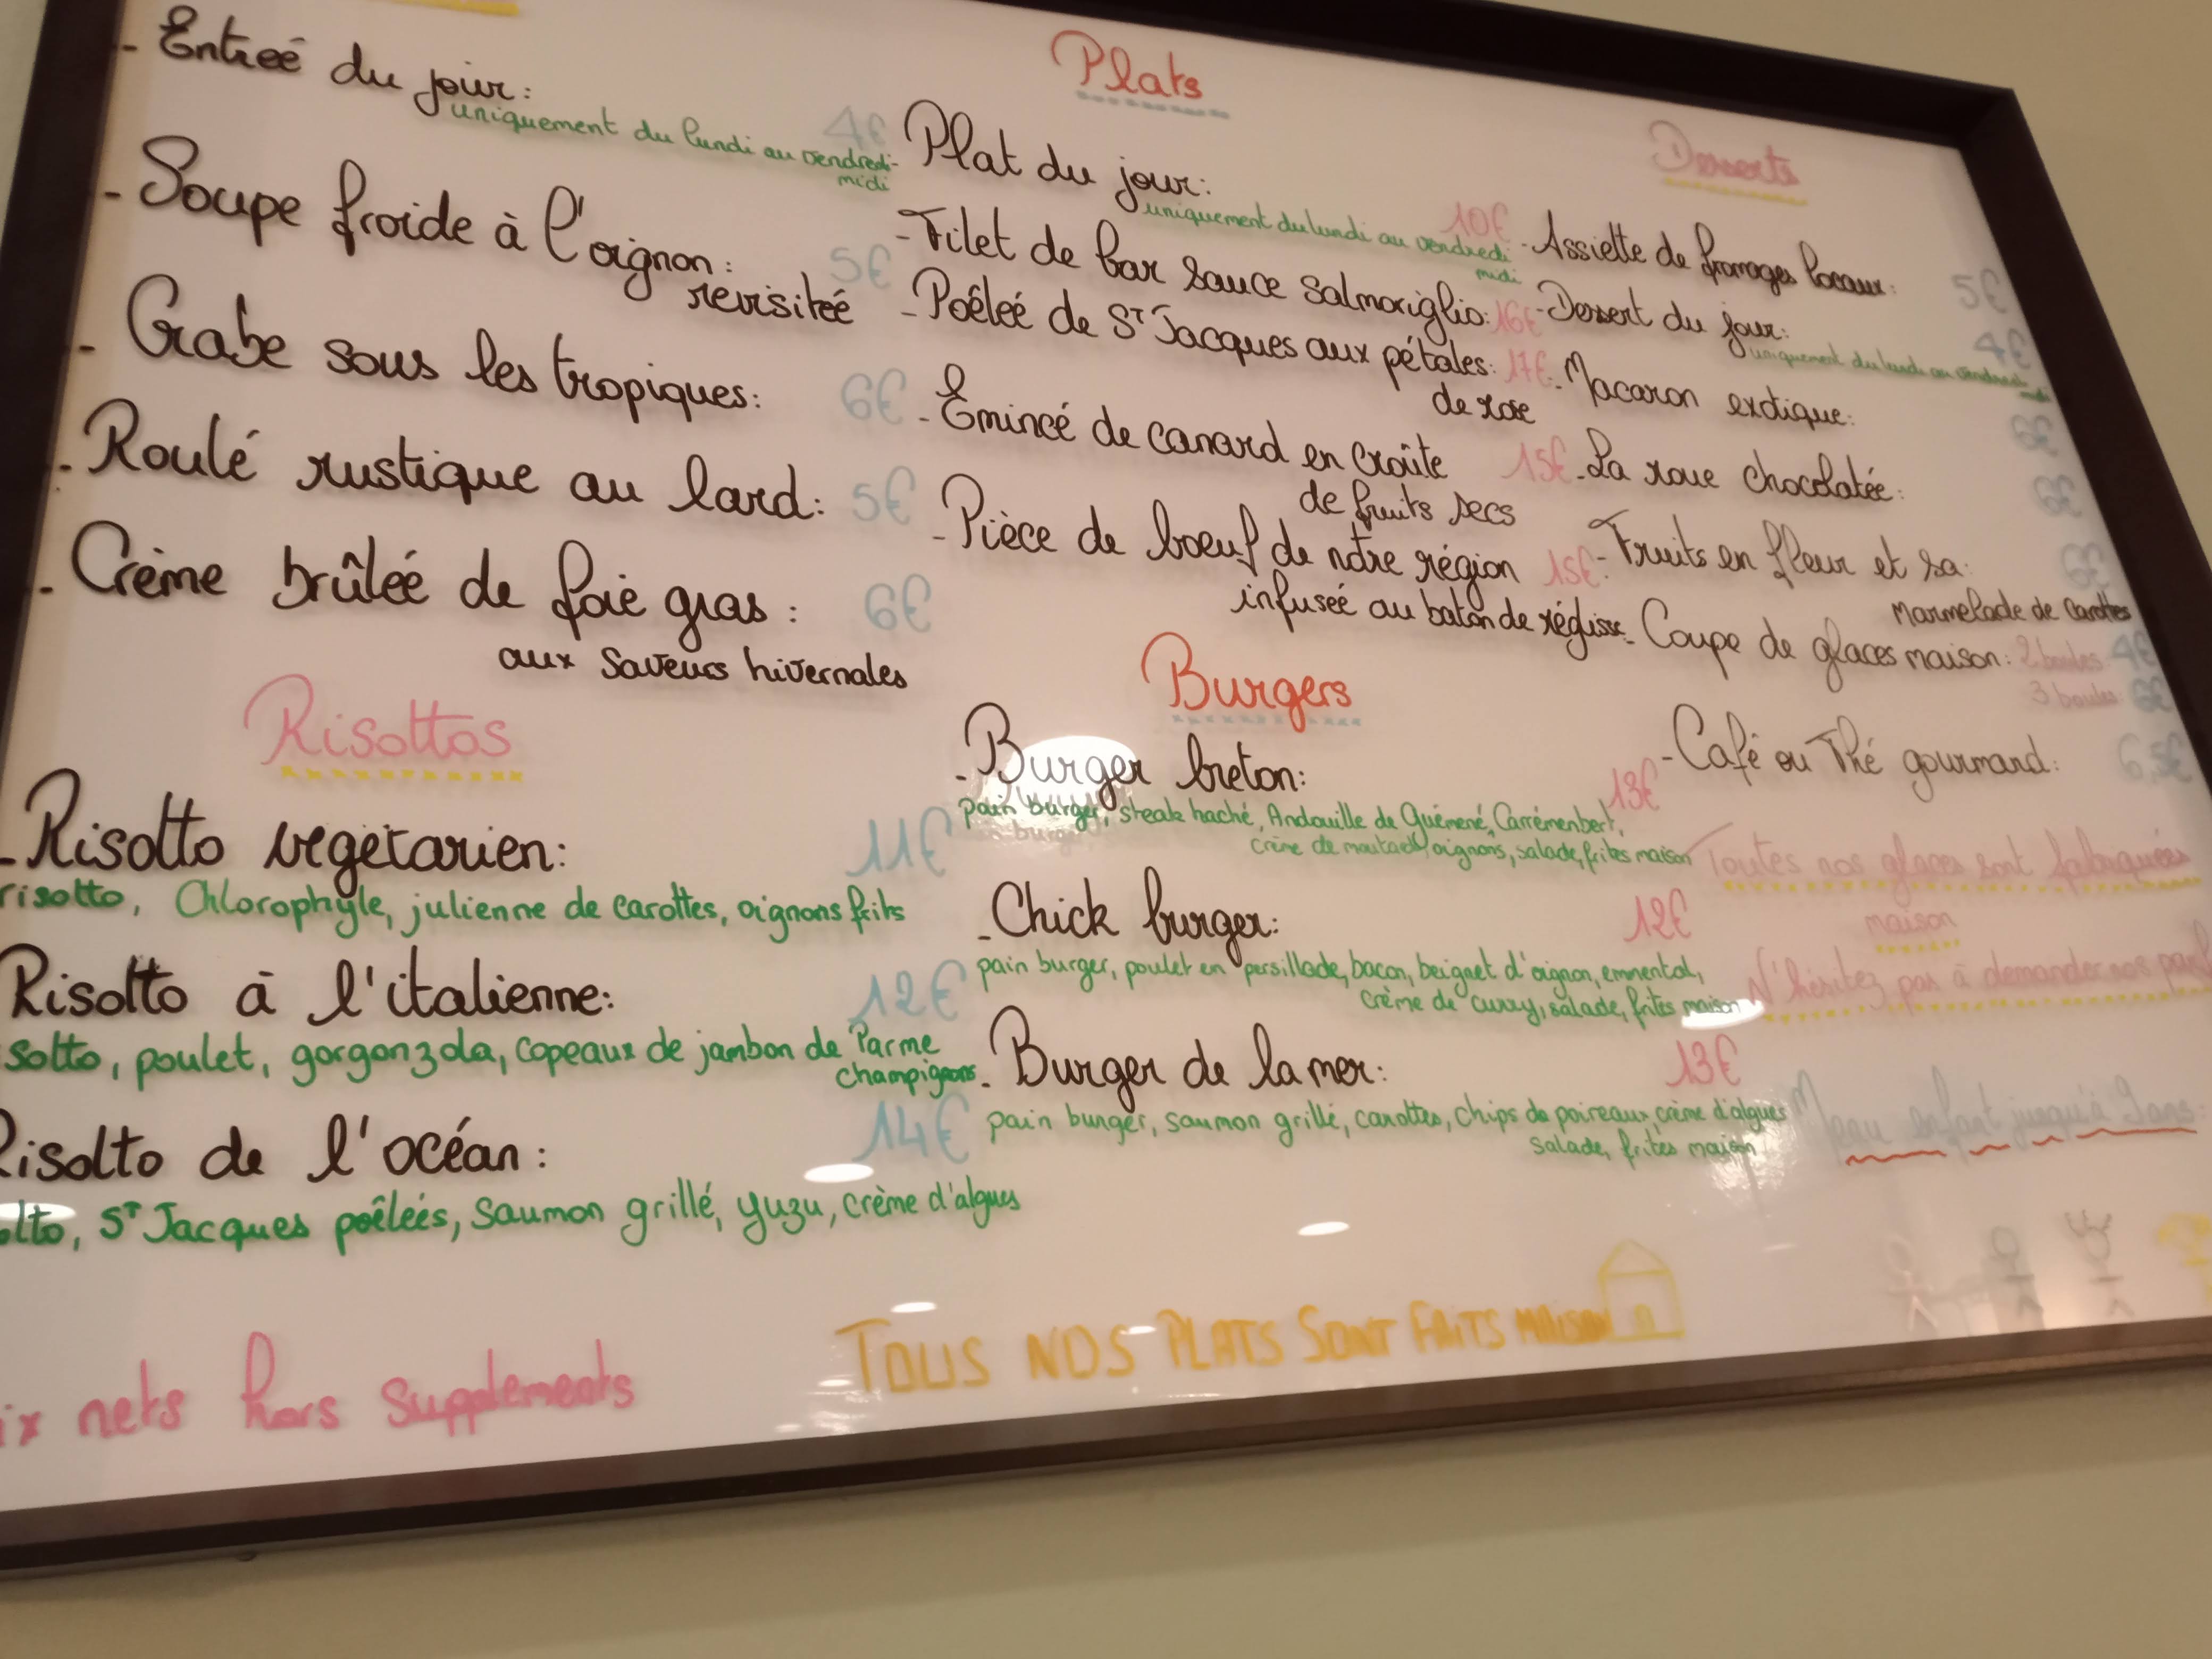 - Entreé du jour: 4€
uniquement du lundi au vendredi
midi
- Soupe froide à l'oignon: 5€
revisiteé
- Crabe sous les tropiques: 6€
- Roulé rustique au lard: 5€
- Crème brûleé de foie gras: 6€
aux saveurs hivernales
Risottos
- Risotto végétarien: 11€
risotto, Chlorophyle, julienne de carottes, oignons frits
Risotto à l'italienne: 12€
sotto, poulet, gorgonzola, copeaux de jambon de Parme
champignons
Risotto de l'océan: 14€
otto, St Jacques poêleés, saumon grillé, yuzu, crème d'algues
ix nets hors supplements
Plats
- Plat du jour: 10€
uniquement du lundi au vendredi
midi
- Filet de bar sauce salmoriglio: 16€
- Poêleé de St Jacques aux pétales: 17€
de rose
- Émincé de canard en croûte 15€
de fruits secs
- Pièce de boeuf de notre région 15€
infuseé au baton de réglisse
Burgers
- Burger breton: 13€
pain burger, steak haché, Andouille de Guémené, Carrémenbert,
crème de moutarde, oignons, salade, frites maison
- Chick burger: 12€
pain burger, poulet en persillade, bacon, beignet d'oignon, emmental,
crème de curry, salade, frites maison
- Burger de la mer: 13€
pain burger, saumon grillé, carottes, chips de poireaux, crème d'algues
salade, frites maison
TOUS NOS PLATS SONT FAITS MAISON
Desserts
- Assiette de fromages locaux: 5€
- Dessert du jour: 4€
uniquement du lundi au vendredi
midi
- Macaron exotique: 6€
- La roue chocolatée: 6€
- Fruits en fleur et sa: 6€
marmelade de carottes
- Coupe de glaces maison: 2 boules 4€
3 boules 6€
- Café ou Thé gourmand: 6,5€
Toutes nos glaces sont fabriquées
maison
N'hésitez pas à demander nos parf
Menu enfant jusqu'à 9 ans